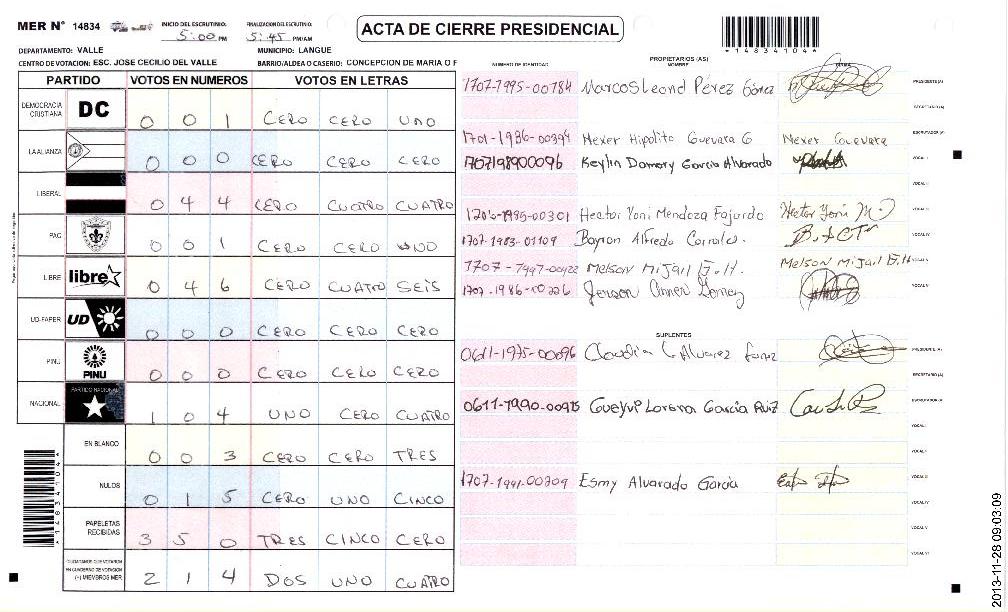 MER N° 14834
INICIO DEL ESCRUTINIO: 5:00 PM
FINALIZACION DEL ESCRUTINIO: 5:45 PM/AM
ACTA DE CIERRE PRESIDENCIAL
*14834104*
DEPARTAMENTO: VALLE
MUNICIPIO: LANGUE
CENTRO DE VOTACION: ESC. JOSE CECILIO DEL VALLE
BARRIO/ALDEA O CASERIO: CONCEPCION DE MARIA O F
PARTIDO VOTOS EN NUMEROS VOTOS EN LETRAS
DEMOCRACIA CRISTIANA DC 0 0 1 CERO CERO UNO
LA ALIANZA 0 0 0 CERO CERO CERO
LIBERAL 0 4 4 CERO CUATRO CUATRO
PAC 0 0 1 CERO CERO UNO
LIBRE libre 0 4 6 CERO CUATRO SEIS
UD-FAPER UD 0 0 0 CERO CERO CERO
PINU PINU 0 0 0 CERO CERO CERO
NACIONAL PARTIDO NACIONAL 1 0 4 UNO CERO CUATRO
EN BLANCO 0 0 3 CERO CERO TRES
NULOS 0 1 5 CERO UNO CINCO
PAPELETAS RECIBIDAS 3 5 0 TRES CINCO CERO
CIUDADANOS QUE VOTARON EN CUADERNO DE VOTACION (+) MIEMBROS MER 2 1 4 DOS UNO CUATRO
*14834104*
PROPIETARIOS (AS)
NUMERO DE IDENTIDAD NOMBRE FIRMA
1707-1995-00784 Marcos Leonel Pérez PRESIDENTE (A)
SECRETARIO (A)
1701-1986-00394 Mexer Hipolito Guevara G Mexer Guevara ESCRUTADOR (A)
1707198900096 Keylin Damary Garcia Alvarado VOCAL I
VOCAL II
1706-1985-00301 Hector Yoni Mendoza Fajardo Hector Yoni M. VOCAL III
1707-1983-01109 Bayron Alfredo VOCAL IV
Melson Mijail VOCAL V
1707-1986-00226 VOCAL VI
SUPLENTES
0611-1975-00096 Claudia PRESIDENTE (A)
SECRETARIO (A)
Lorena Garcia Ruiz ESCRUTADOR (A)
VOCAL I
VOCAL II
Esmy Alvarado Garcia VOCAL III
VOCAL IV
VOCAL V
VOCAL VI
2013-11-28 09:03:09